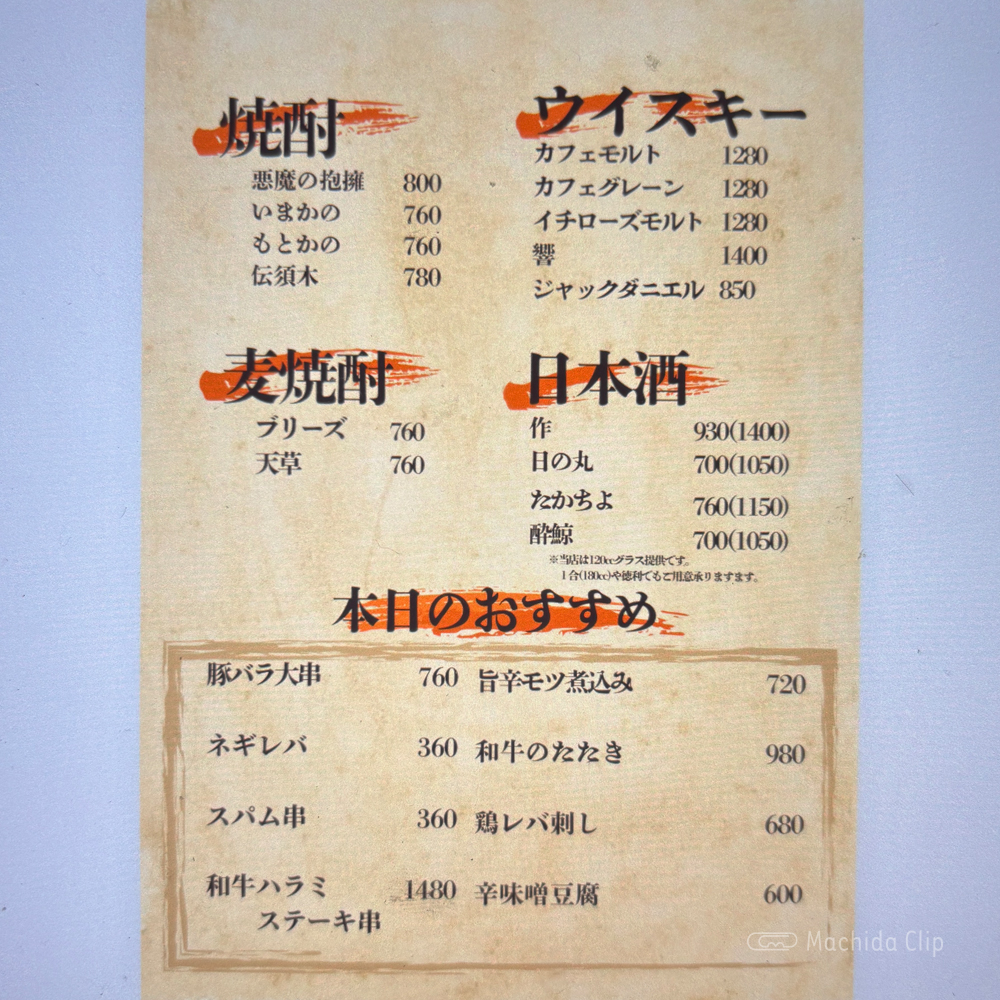 焼酎
悪魔の抱擁 800
いまかの 760
もとかの 760
伝須木 780
ウイスキー
カフェモルト 1280
カフェグレーン 1280
イチローズモルト 1280
響 1400
ジャックダニエル 850
麦焼酎
ブリーズ 760
天草 760
日本酒
作 930(1400)
日の丸 700(1050)
たかちよ 760(1150)
酔鯨 700(1050)
※当店は120ccグラス提供です。
1合(180cc)や徳利でもご用意承りますます。
本日のおすすめ
豚バラ大串 760
ネギレバ 360
スパム串 360
和牛ハラミ 1480
ステーキ串
旨辛モツ煮込み 720
和牛のたたき 980
鶏レバ刺し 680
辛味噌豆腐 600
Machida Clip